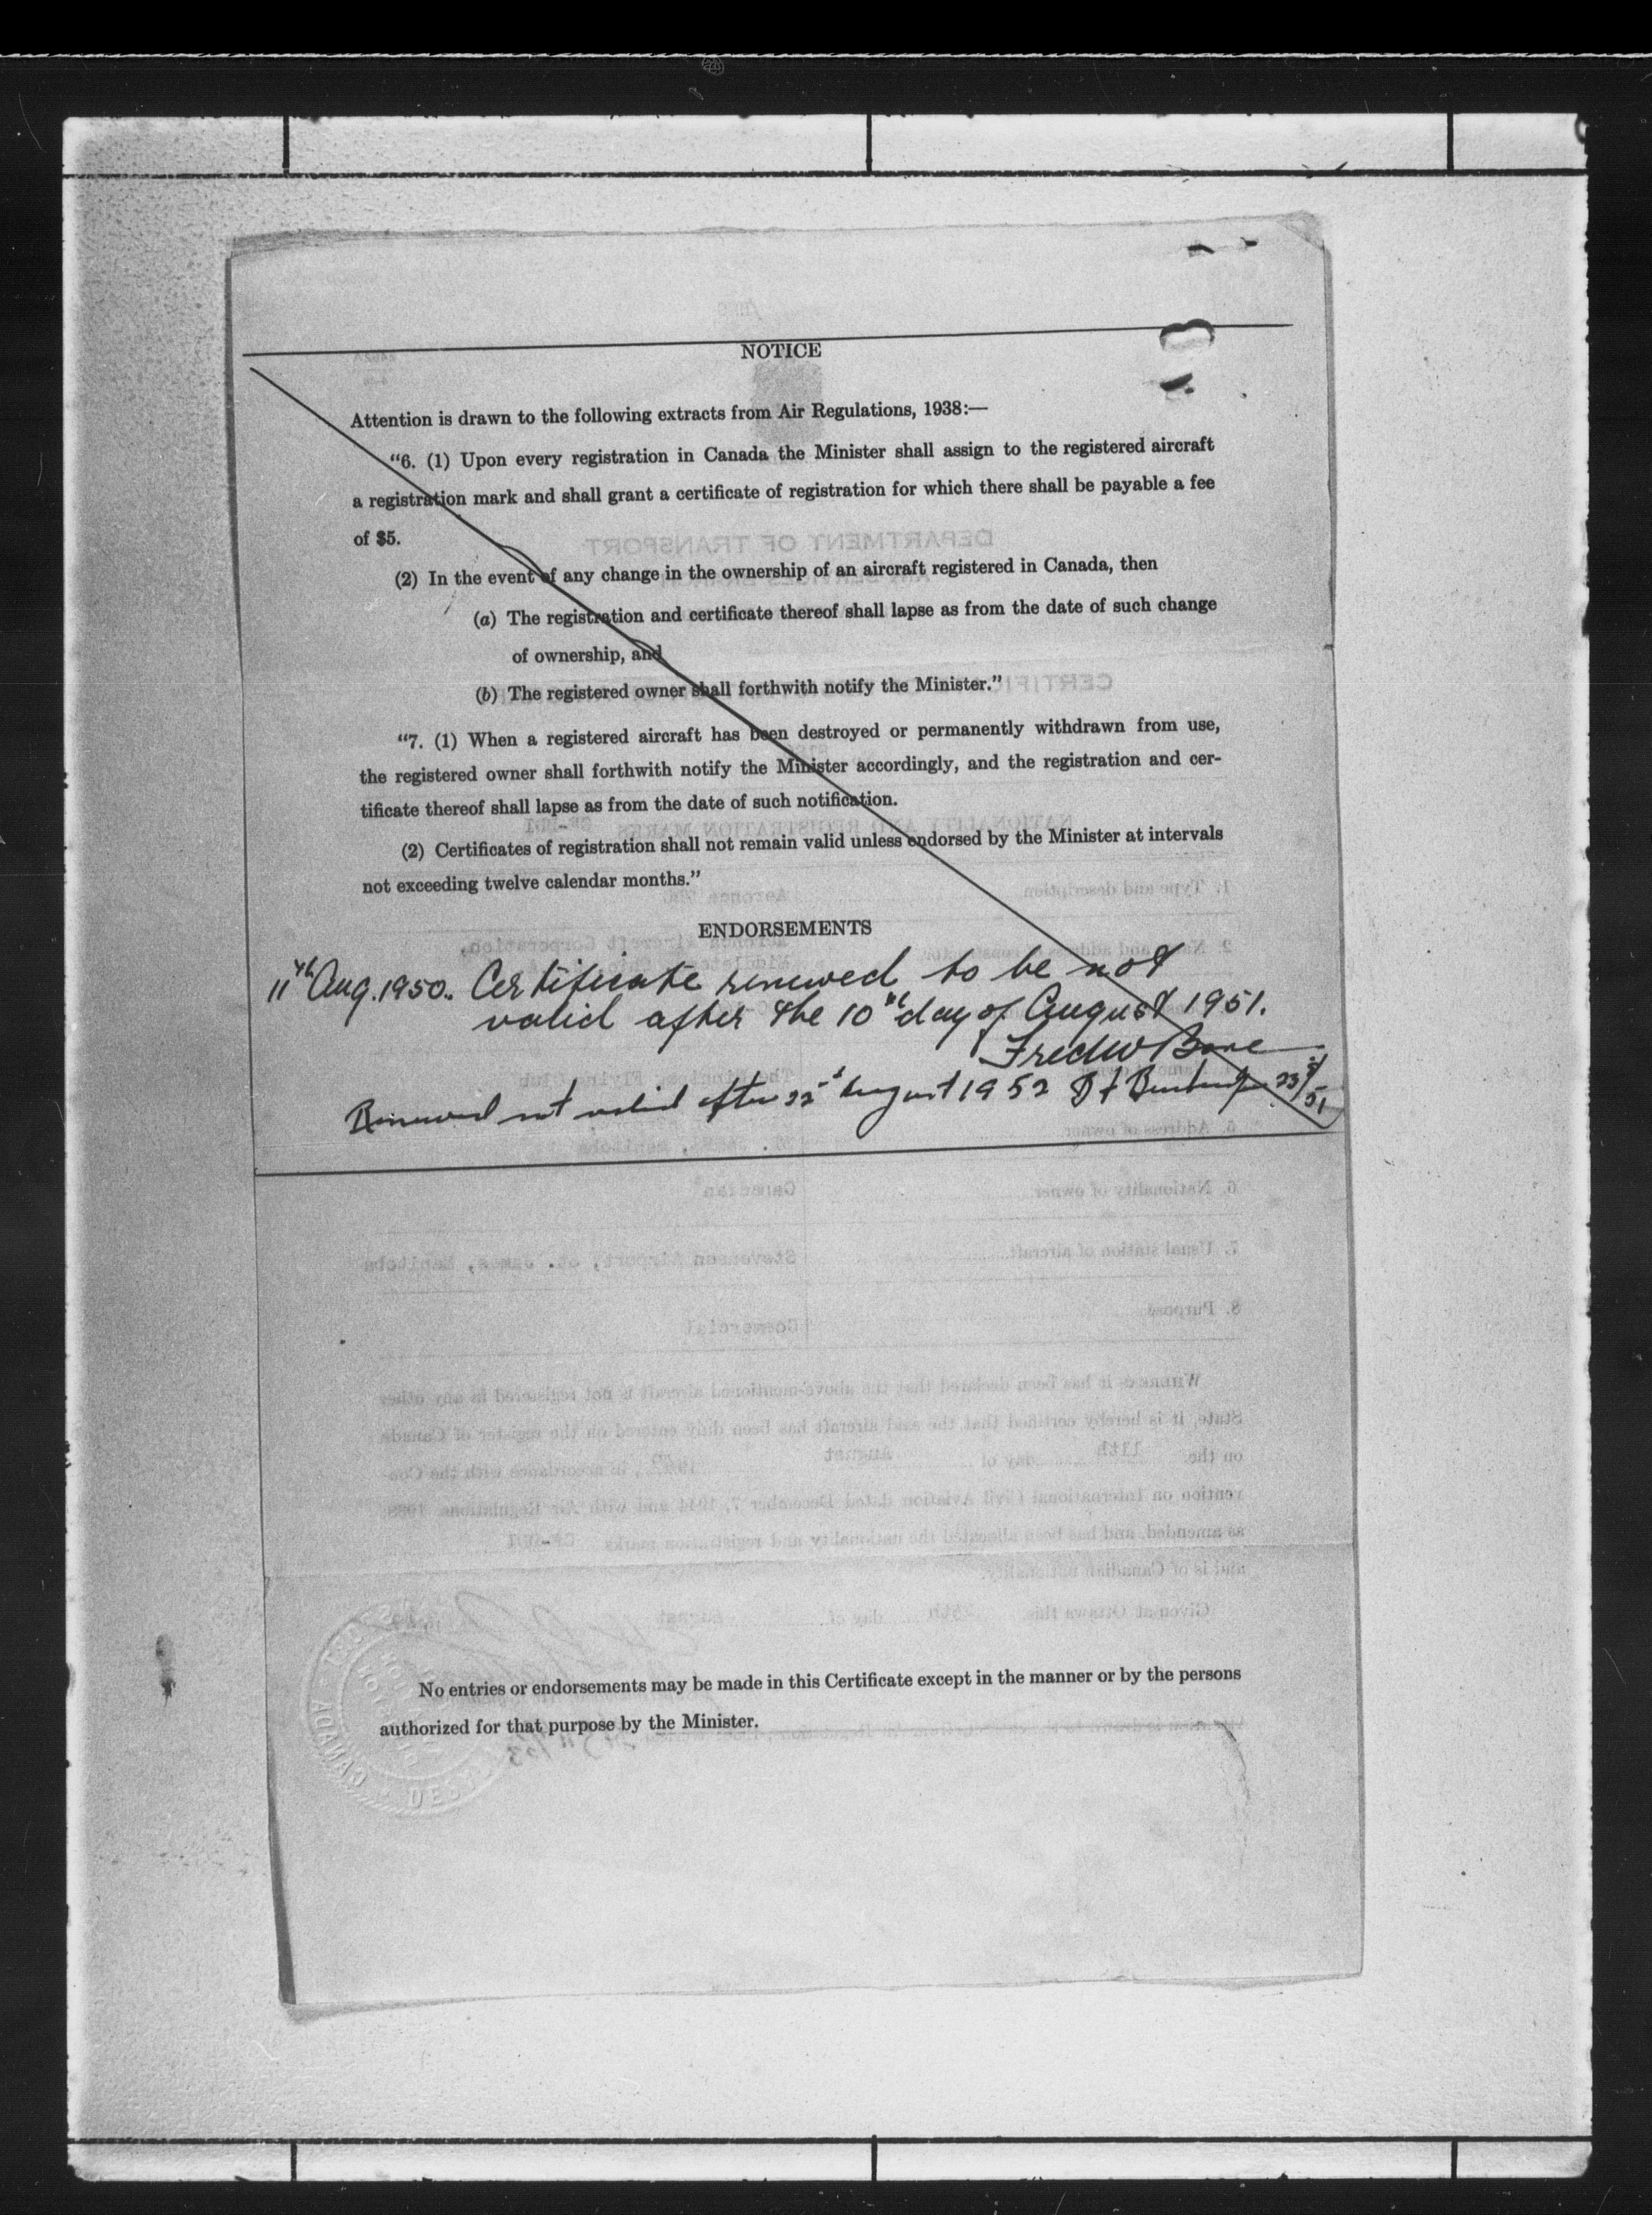 NOTICE
Attention is drawn to the following extracts from Air Regulations, 1938:—
“6. (1) Upon every registration in Canada the Minister shall assign to the registered aircraft
a registration mark and shall grant a certificate of registration for which there shall be payable a fee
of $5.
(2) In the event of any change in the ownership of an aircraft registered in Canada, then
(a) The registration and certificate thereof shall lapse as from the date of such change
of ownership, and
(b) The registered owner shall forthwith notify the Minister.”
“7. (1) When a registered aircraft has been destroyed or permanently withdrawn from use,
the registered owner shall forthwith notify the Minister accordingly, and the registration and cer-
tificate thereof shall lapse as from the date of such notification.
(2) Certificates of registration shall not remain valid unless endorsed by the Minister at intervals
not exceeding twelve calendar months.”
ENDORSEMENTS
11th Aug. 1950. Certificate renewed to be not
valid after the 10th day of August 1951.
Fred W
Renewed not valid after 22d August 1952 23/8/51
No entries or endorsements may be made in this Certificate except in the manner or by the persons
authorized for that purpose by the Minister.